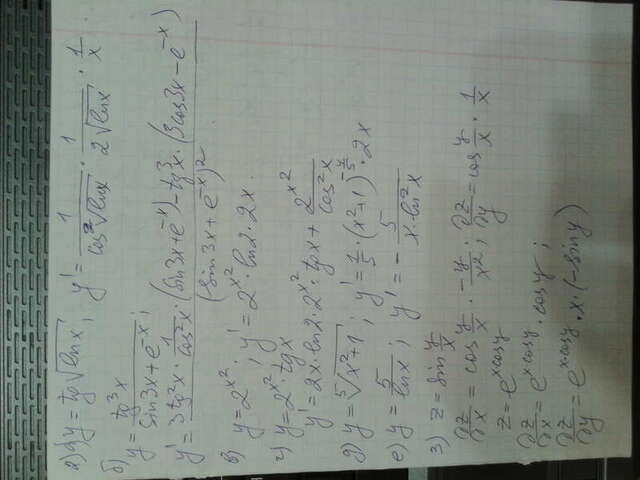 2) а) y = tg √(ln x) ; y' = 1/(cos² √(ln x)) · 1/(2√(ln x)) · 1/x
б) y = tg³x/(sin3x + e^(-x)) ;
y' = (3tg²x · 1/cos²x · (sin3x + e^(-x)) - tg³x · (3cos3x - e^(-x)))/(sin3x + e^(-x))²
в) y = 2^(x²) ; y' = 2^(x²) · ln2 · 2x
г) y = 2^(x²) · tgx
y' = 2x · ln2 · 2^(x²) · tgx + 2^(x²)/cos²x
д) y = ⁵√(x²+1) ; y' = 1/5 · (x²+1)^(-4/5) · 2x
е) y = 5/ln x ; y' = - 5/(x · ln²x)
3) z = sin y/x
∂z/∂x = cos y/x · -y/x² ; ∂z/∂y = cos y/x · 1/x
z = e^(x cosy)
∂z/∂x = e^(x cosy) · cosy ;
∂z/∂y = e^(x cosy) · x · (-siny)